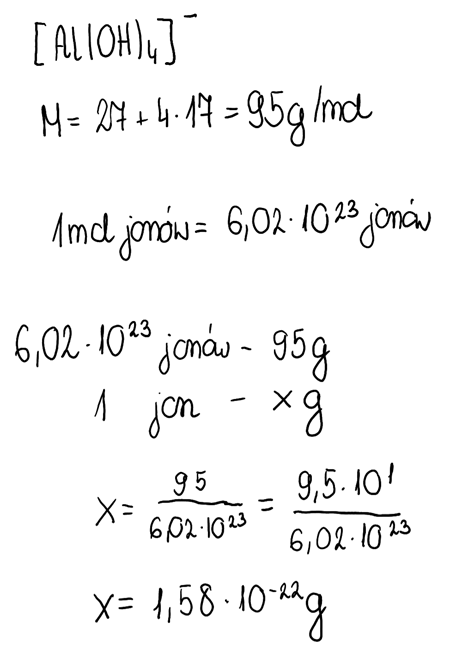 [Al(OH)₄]⁻
M = 27 + 4 · 17 = 95g/mol
1mol jonów = 6,02 · 10²³ jonów
6,02 · 10²³ jonów - 95g
1 jon - x g
x = 95 / 6,02 · 10²³ = 9,5 · 10¹ / 6,02 · 10²³
x = 1,58 · 10⁻²² g